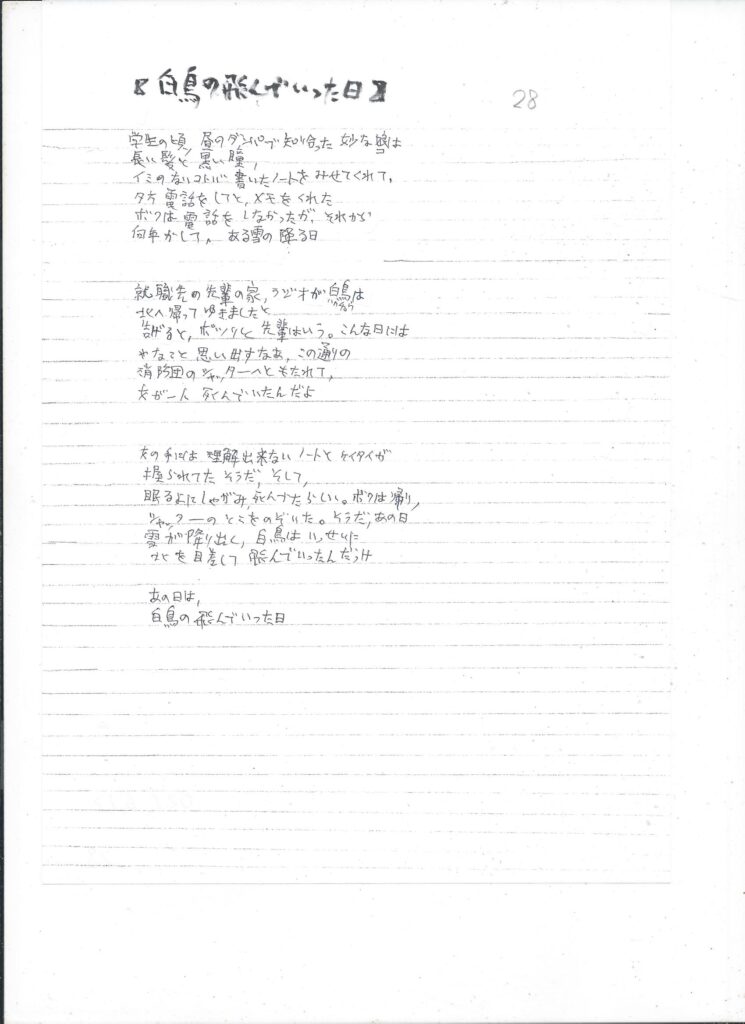 【白鳥の飛んでいった日】
28
学生の頃、昼のダンパで知り合った 妙な娘は
コ
長い髪と 黒い瞳、
イミのないコトバ 書いたノートを みせてくれて、
夕方 電話をしてと、メモをくれた
ボクは 電話を しなかったが、それから
何年かして、ある雪の降る日
就職先の先輩の家、ラジオが 白鳥は
北へ帰って ゆきましたと
告げると、ポツリと 先輩はいう。こんな日には
わなこと 思い出すなあ、この通りの
消防団のシャッターへと もたれて、
女が一人 死んでいたんだよ
女の手には 理解出来ない ノートと ケイタイが
握られてた そうだ、そして、
眠るよにしゃがみ、死んでたらしい。ボクは 帰り、
シャッターの とこをのぞいた。そうだ、あの日
雪が降り出し、白鳥は いっせいに
北を目差して 飛んでいったんだっけ
あの日は、
白鳥の 飛んでいった日